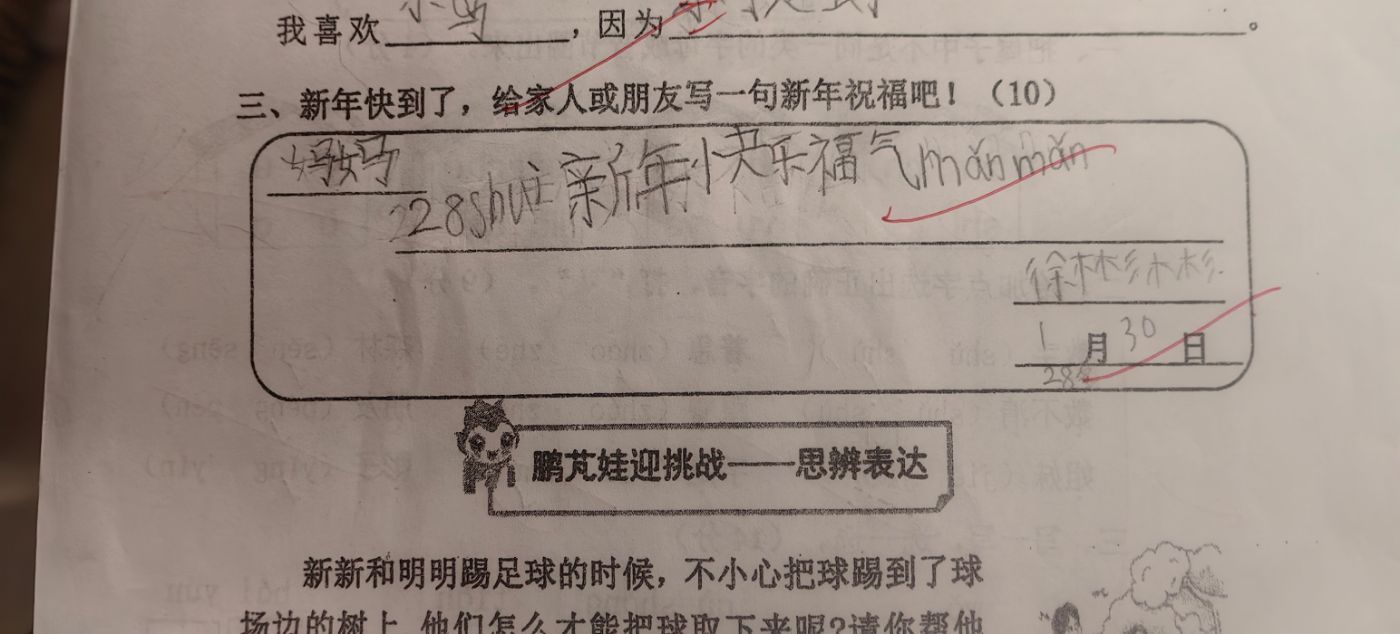 我喜欢，因为。
三、新年快到了，给家人或朋友写一句新年祝福吧！（10）
妈妈
228shuì 新年快乐福气mǎnmǎn
徐彬彬
1月30日
鹏芃娃迎挑战——思辨表达
新新和明明踢足球的时候，不小心把球踢到了球
场边的树上，他们怎么才能把球取下来呢？请你帮他